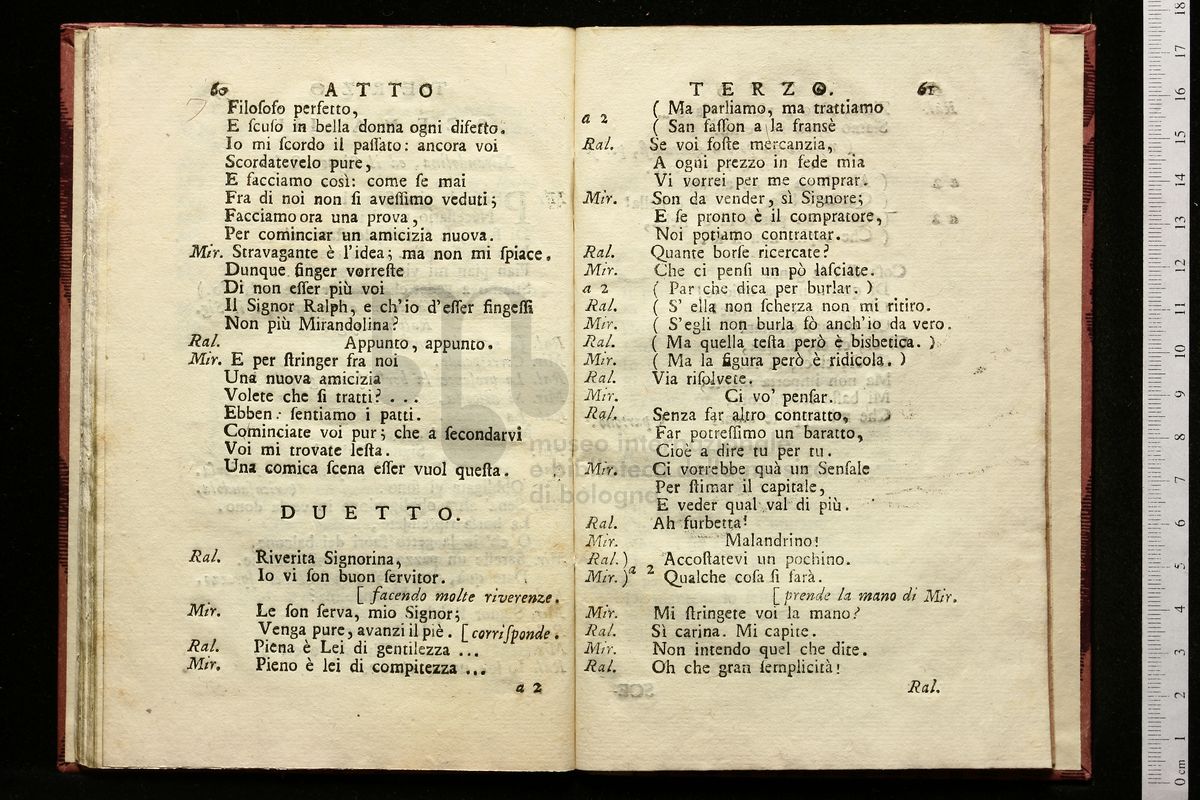 60 ATTO
Filoſofo perfetto,
E ſcuſo in bella donna ogni difetto.
Io mi ſcordo il paſſato: ancora voi
Scordatevelo pure,
E facciamo così: come ſe mai
Fra di noi non ſi aveſſimo veduti;
Facciamo ora una prova,
Per cominciar un amicizia nuova.
Mir. Stravagante è l'idea; ma non mi ſpiace.
Dunque finger vorreſte
Di non eſſer più voi
Il Signor Ralph, e ch'io d'eſſer fingeſſi
Non più Mirandolina?
Ral. Appunto, appunto.
Mir. E per ſtringer fra noi
Una nuova amicizia
Volete che ſi tratti? . . .
Ebben: ſentiamo i patti.
Cominciate voi pur; che a ſecondarvi
Voi mi trovate leſta.
Una comica ſcena eſſer vuol queſta.
DUETTO.
Ral. Riverita Signorina,
Io vi ſon buon ſervitor.
[ facendo molte riverenze.
Mir. Le ſon ſerva, mio Signor;
Venga pure, avanzi il piè. [corriſponde.
Ral. Piena è Lei di gentilezza ...
Mir. Pieno è lei di compitezza ...
a 2
TERZO. 61
a 2 ( Ma parliamo, ma trattiamo
( San faſſon a la fransè
Ral. Se voi foſte mercanzia,
A ogni prezzo in fede mia
Vi vorrei per me comprar.
Mir. Son da vender, sì Signore;
E ſe pronto è il compratore,
Noi potiamo contrattar.
Ral. Quante borſe ricercate?
Mir. Che ci penſi un pò laſciate.
a 2 ( Par che dica per burlar. )
Ral. ( S' ella non ſcherza non mi ritiro.
Mir. ( S'egli non burla fò anch'io da vero.
Ral. ( Ma quella teſta però è bisbetica. )
Mir. ( Ma la figura però è ridicola. )
Ral. Via riſolvete.
Mir. Ci vo' penſar.
Ral. Senza far altro contratto,
Far potreſſimo un baratto,
Cioè a dire tu per tu.
Mir. Ci vorrebbe quà un Senſale
Per ſtimar il capitale,
E veder qual val di più.
Ral. Ah furbetta!
Mir. Malandrino!
Ral.) a 2 Accoſtatevi un pochino.
Mir.) Qualche coſa ſi farà.
[ prende la mano di Mir.
Mir. Mi ſtringete voi la mano?
Ral. Sì carina. Mi capite.
Mir. Non intendo quel che dite.
Ral. Oh che gran ſemplicità!
Ral.
museo internazionale
e biblioteca della musica
di bologna
0 cm 1 2 3 4 5 6 7 8 9 10 11 12 13 14 15 16 17 18